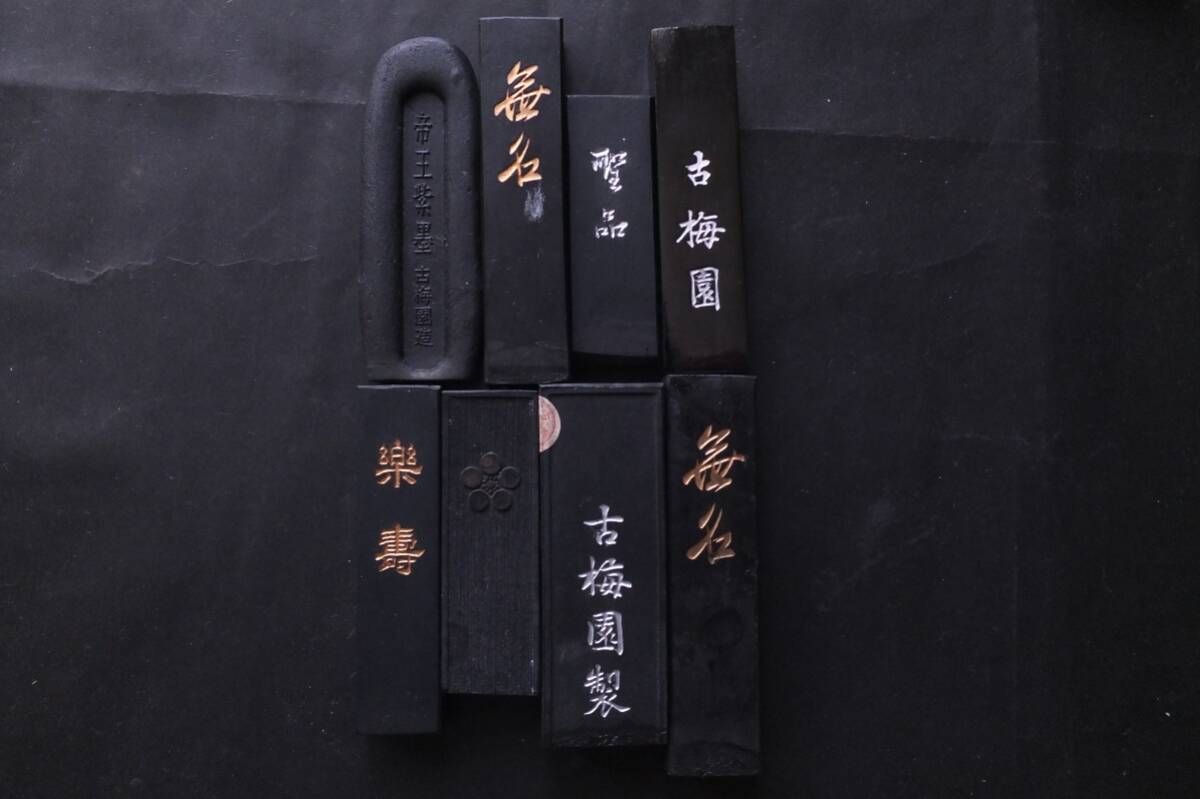 帝王紫墨 古梅園造
無名
聖品
古梅園
樂壽
古梅園製
無名